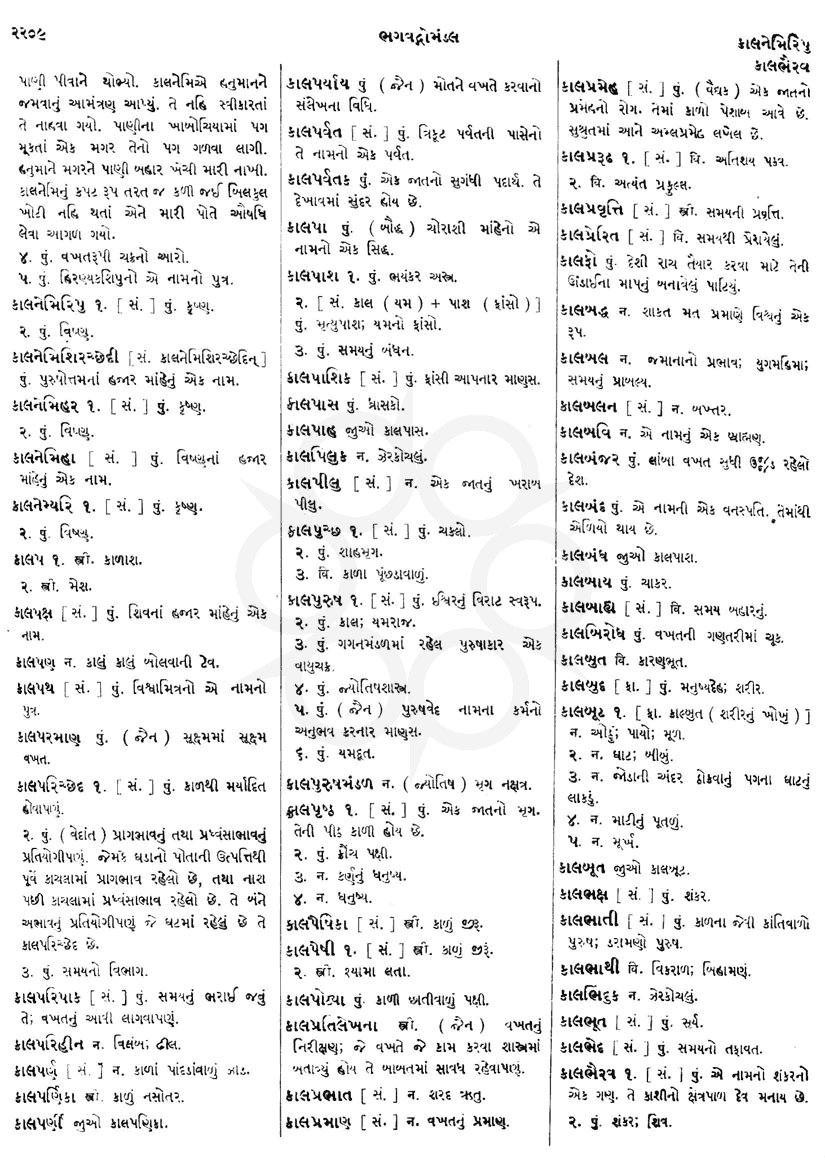 ૨૨૦૯
ભગવદ્ગોમંડલ
કાલનેમિરિપુ
કાલભૈરવ
પાણી પીવાને થોભ્યો. કાલનેમિએ હનુમાનને
જમવાનું આમંત્રણ આપ્યું. તે નહિ સ્વીકારતાં
તે નાહવા ગયો. પાણીના ખાબોચિયામાં પગ
મૂકતાં એક મગર તેનો પગ ગળવા લાગી.
હનુમાને મગરને પાણી બહાર ખેંચી મારી નાખી.
કાલનેમિનું કપટ રૂપ તરત જ કળી જઈ બિલકુલ
ખોટી નહિ થતાં એને મારી પોતે ઔષધિ
લેવા આગળ ગયો.
૪. પું. વખતરૂપી ચક્રનો આરો.
૫. પું. હિરણ્યકશિપુનો એ નામનો પુત્ર.
કાલનેમિરિપુ ૧. [ સં. ] પું. કૃષ્ણ.
૨. પું. વિષ્ણુ.
કાલનેમિશિરચ્છેદી [ સં. કાલનેમિશિરચ્છેદિન્ ]
પું. પુરુષોત્તમનાં હજાર માંહેનું એક નામ.
કાલનેમિહર ૧. [ સં. ] પું. કૃષ્ણ.
૨. પું. વિષ્ણુ.
કાલનેમિહા [ સં. ] પું. વિષ્ણુનાં હજાર
માંહેનું એક નામ.
કાલનેમ્યરિ ૧. [ સં. ] પું. કૃષ્ણ.
૨. પું. વિષ્ણુ.
કાલપ ૧. સ્ત્રી. કાળાશ.
૨. સ્ત્રી. મેશ.
કાલપક્ષ [ સં. ] પું. શિવનાં હજાર માંહેનું એક
નામ.
કાલપણ ન. કાલું કાલું બોલવાની ટેવ.
કાલપથ [ સં. ] પું. વિશ્વામિત્રનો એ નામનો
પુત્ર.
કાલપરમાણ પું. ( જૈન ) સૂક્ષ્મમાં સૂક્ષ્મ
વખત.
કાલપરિચ્છેદ ૧. [ સં. ] પું. કાળથી મર્યાદિત
હોવાપણું.
૨. પું. ( વેદાંત ) પ્રાગભાવનું તથા પ્રધ્વંસાભાવનું
પ્રતિયોગીપણું. જેમકે ઘડાનો પોતાની ઉત્પત્તિથી
પૂર્વે કાચલામાં પ્રાગભાવ રહેલો છે, તથા નાશ
પછી કાચલામાં પ્રધ્વંસાભાવ રહેલો છે. તે બંને
અભાવનું પ્રતિયોગીપણું જે ઘટમાં રહેલું છે તે
કાલપરિચ્છેદ છે.
૩. પું. સમયનો વિભાગ.
કાલપરિપાક [ સં. ] પું. સમયનું ભરાઈ જવું
તે; વખતનું આવી લાગવાપણું.
કાલપરિહીન ન. વિલંબ; ઢીલ.
કાલપર્ણ [ સં. ] ન. કાળાં પાંદડાંવાળું ઝાડ.
કાલપર્ણિકા સ્ત્રી. કાળું નસોતર.
કાલપર્ણી જુઓ કાલપણિકા.
કાલપર્યાય પું ( જૈન ) મોતને વખતે કરવાનો
સંલેખના વિધિ.
કાલપર્વત [ સં. ] પું. ત્રિકૂટ પર્વતની પાસેનો
તે નામનો એક પર્વત.
કાલપર્વતક પું. એક જાતનો સુગંધી પદાર્થ. તે
દેખાવમાં સુંદર હોય છે.
કાલપા પું. ( બૌદ્ધ ) ચોરાશી માંહેનો એ
નામનો એક સિદ્ધ.
કાલપાશ ૧. પું. ભયંકર અસ્ત્ર.
૨. [ સં. કાલ ( યમ ) + પાશ ( ફાંસો ) ]
પું. મૃત્યુપાશ; યમનો ફાંસો.
૩. પું. સમયનું બંધન.
કાલપાશિક [ સં. ] પું. ફાંસી આપનાર માણસ.
કાલપાસ પું. ધ્રાસકો.
કાલપાહ જુઓ કાલપાસ.
કાલપિલુક ન. ઝેરકોચલું.
કાલપીલુ [ સં. ] ન. એક જાતનું ખરાબ
પીલુ.
કાલપુચ્છ ૧. [ સં. ] પું. ચકલો.
૨. પું. શાહમૃગ.
૩. વિ. કાળા પૂંછડાવાળું.
કાલપુરુષ ૧. [ સં. ] પું. ઈશ્વરનું વિરાટ સ્વરૂપ.
૨. પું. કાલ; યમરાજ.
૩. પું. ગગનમંડળમાં રહેલ પુરુષાકાર એક
વાયુચક્ર.
૪. પું. જ્યોતિષશાસ્ત્ર.
૫. પું. ( જૈન ) પુરુષવેદ નામના કર્મનો
અનુભવ કરનાર માણસ.
૬. પું. યમદૂત.
કાલપુરુષમંડળ ન. ( જ્યોતિષ ) મૃગ નક્ષત્ર.
કાલપૃષ્ઠ ૧. [ સં. ] પું. એક જાતનો મૃગ.
તેની પીઠ કાળી હોય છે.
૨. પું. ક્રૌંચ પક્ષી.
૩. ન. કર્ણનું ધનુષ્ય.
૪. ન. ધનુષ્ય.
કાલપેષિકા [ સં. ] સ્ત્રી. કાળું જીરૂ.
કાલપેષી ૧. [ સં. ] સ્ત્રી. કાળું જીરૂં.
૨. સ્ત્રી. શ્યામા લતા.
કાલપોઠ્યા પું. કાળી છાતીવાળું પક્ષી.
કાલપ્રતિલેખના સ્ત્રી. ( જૈન ) વખતનું
નિરીક્ષણ; જે વખતે જે કામ કરવા શાસ્ત્રમાં
બતાવ્યું હોય તે બાબતમાં સાવધ રહેવાપણું.
કાલપ્રભાત [ સં. ] ન. શરદ ઋતુ.
કાલપ્રમાણ [ સં. ] ન. વખતનું પ્રમાણ.
કાલપ્રમેહ [ સં. ] પું. ( વૈદ્યક ) એક જાતનો
પ્રમેહનો રોગ. તેમાં કાળો પેશાબ આવે છે.
સુશ્રુતમાં આને અમ્લપ્રમેહ લખેલ છે.
કાલપ્રરૂઢ ૧. [ સં. ] વિ. અતિશય પક્વ.
૨. વિ. અત્યંત પ્રફુલ્લ.
કાલપ્રવૃત્તિ [ સં. ] સ્ત્રી. સમયની પ્રવૃત્તિ.
કાલપ્રેરિત [ સં. ] વિ. સમયથી પ્રેરાયેલું.
કાલફો પું. દેશી રાચ તૈયાર કરવા માટે તેની
ઊંડાઈના માપનું બનાવેલું પાટિયું.
કાલબદ્ધ ન. શાક્ત મત પ્રમાણે વિશ્વનું એક
રૂપ.
કાલબલ ન. જમાનાનો પ્રભાવ; યુગમહિમા;
સમયનું પ્રાબલ્ય.
કાલબલન [ સં. ] ન. બખ્તર.
કાલબવિ ન. એ નામનું એક બ્રાહ્મણ.
કાલબંજર પું. લાંબા વખત સુધી ઉજ્જડ રહેલો
દેશ.
કાલબંદ પું. એ નામની એક વનસ્પતિ. તેમાંથી
એળિયો થાય છે.
કાલબંધ જુઓ કાલપાશ.
કાલબાય પું. ચાકર.
કાલબાહ્ય [ સં. ] વિ. સમય બહારનું.
કાલબિરોધ પું. વખતની ગણતરીમાં ચૂક.
કાલબુત વિ. કારણભૂત.
કાલબુદ [ ફા. ] પું. મનુષ્યદેહ; શરીર.
કાલબૂટ ૧. [ ફા. કાલ્બુત ( શરીરનું ખોખું ) ]
ન. ઓઠું; પાયો; મૂળ.
૨. ન. ઘાટ; બીબું.
૩. ન. જોડાની અંદર ઠોકવાનું પગના ઘાટનું
લાકડું.
૪. ન. માટીનું પૂતળું.
૫. ન. મૂર્ખ.
કાલબૂત જુઓ કાલબૂટ.
કાલભક્ષ [ સં. ] પું. શંકર.
કાલભાતી [ સં. ] પું. કાળના જેવી કાંતિવાળો
પુરુષ; ડરામણો પુરુષ.
કાલભાથી વિ. વિકરાળ; બિહામણું.
કાલભિંદુક ન. ઝેરકોચલું.
કાલભૂત [ સં. ] પું. સૂર્ય.
કાલભેદ [ સં. ] પું. સમયનો તફાવત.
કાલભૈરવ ૧. [ સં. ] પું. એ નામનો શંકરનો
એક ગણ. તે કાશીનો ક્ષેત્રપાળ દેવ મનાય છે.
૨. પું. શંકર; શિવ.